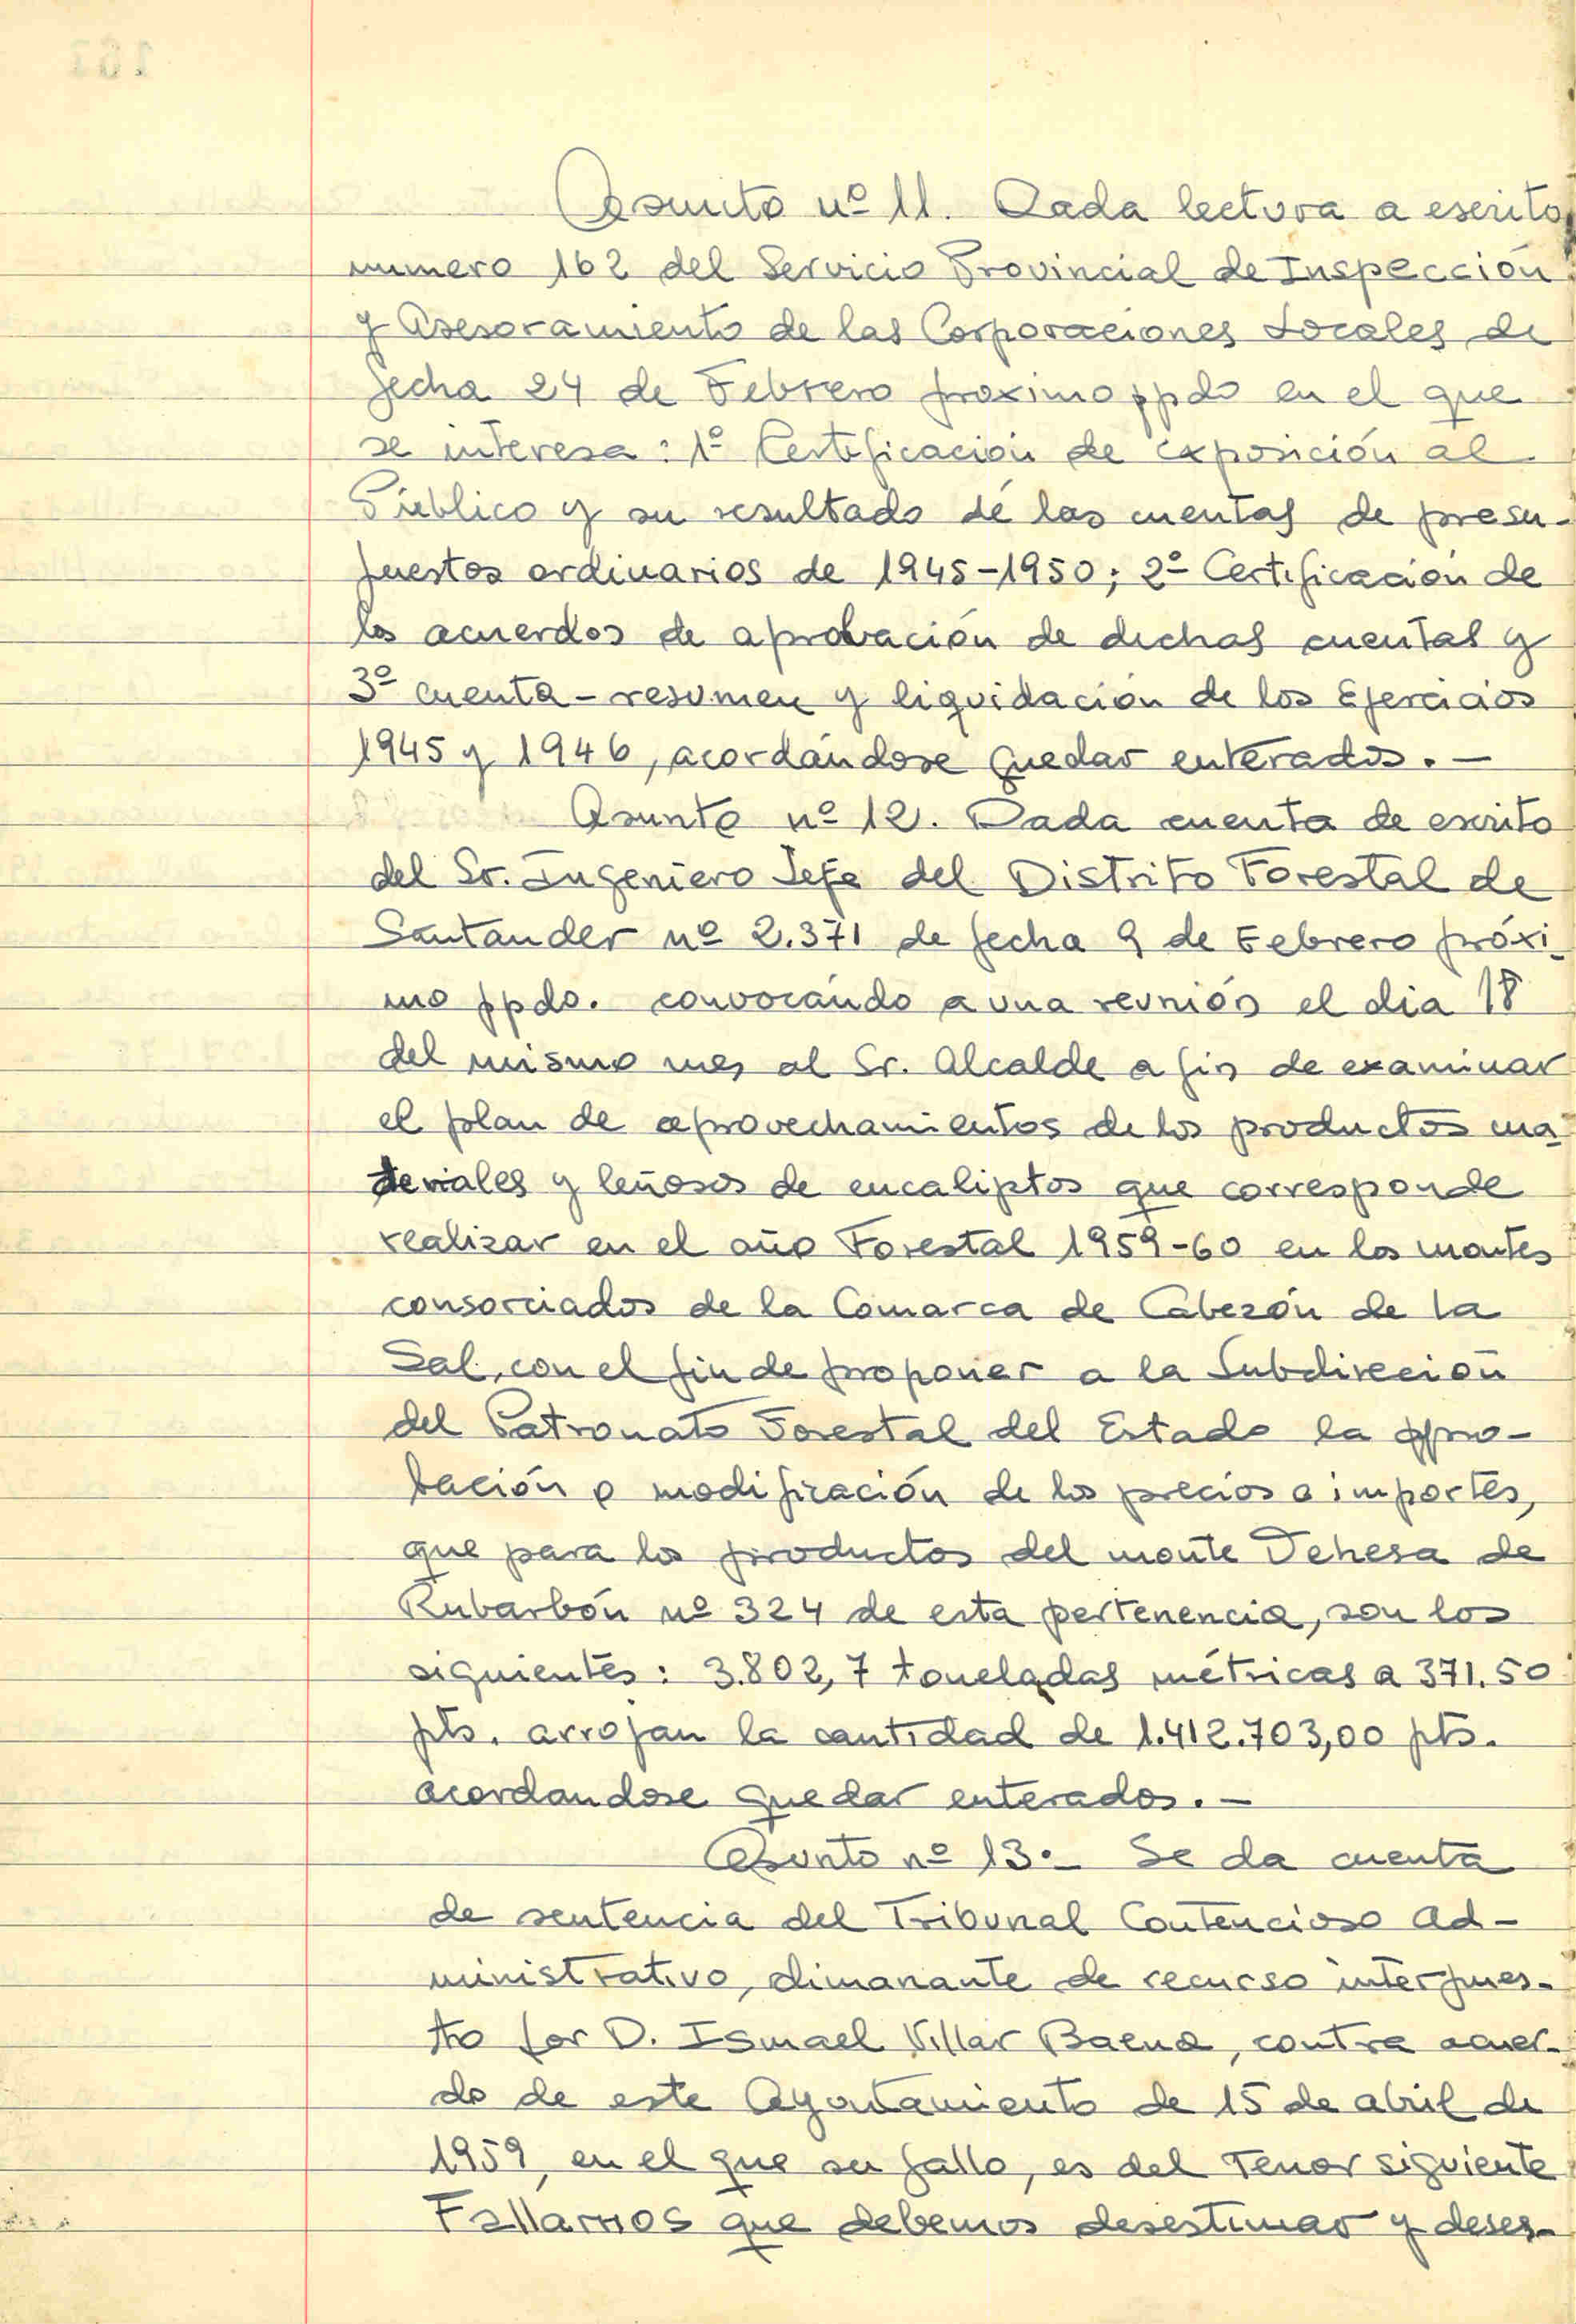 Asunto nº 11. Dada lectura a escrito
numero 162 del Servicio Provincial de Inspección
y Asesoramiento de las Corporaciones Locales de
fecha 24 de Febrero proximo ppdo en el que
se interesa: 1º Certificación de exposición al
Público y su resultado de las cuentas de presu-
puestos ordinarios de 1945-1950; 2º Certificación de
los acuerdos de aprobación de dichas cuentas y
3º cuenta-resumen y liquidación de los Ejercicios
1945 y 1946, acordándose quedar enterados.-
Asunto nº 12. Dada cuenta de escrito
del Sr. Ingeniero Jefe del Distrito Forestal de
Santander nº 2.371 de fecha 9 de Febrero próxi-
mo ppdo. convocando a una reunión el dia 18
del mismo mes al Sr. Alcalde a fin de examinar
el plan de aprovechamientos de los productos ma-
deriales y leñosos de eucaliptos que corresponde
realizar en el año Forestal 1959-60 en los montes
consorciados de la Comarca de Cabezón de la
Sal, con el fin de proponer a la Subdirección
del Patronato Forestal del Estado la apro-
bación o modificación de los precios o importes,
que para los productos del monte Dehesa de
Rubarbón nº 324 de esta pertenencia, son los
siguientes: 3.802,7 toneladas métricas a 371.50
pts. arrojan la cantidad de 1.412.703,00 pts.
acordandose quedar enterados.-
Asunto nº 13.- Se da cuenta
de sentencia del Tribunal Contencioso Ad-
ministrativo, dimanante de recurso interpues-
to por D. Ismael Villar Baena, contra acuer-
do de este Ayuntamiento de 15 de abril de
1959, en el que su fallo, es del tenor siguiente
Fallamos que debemos desestimar y deses-